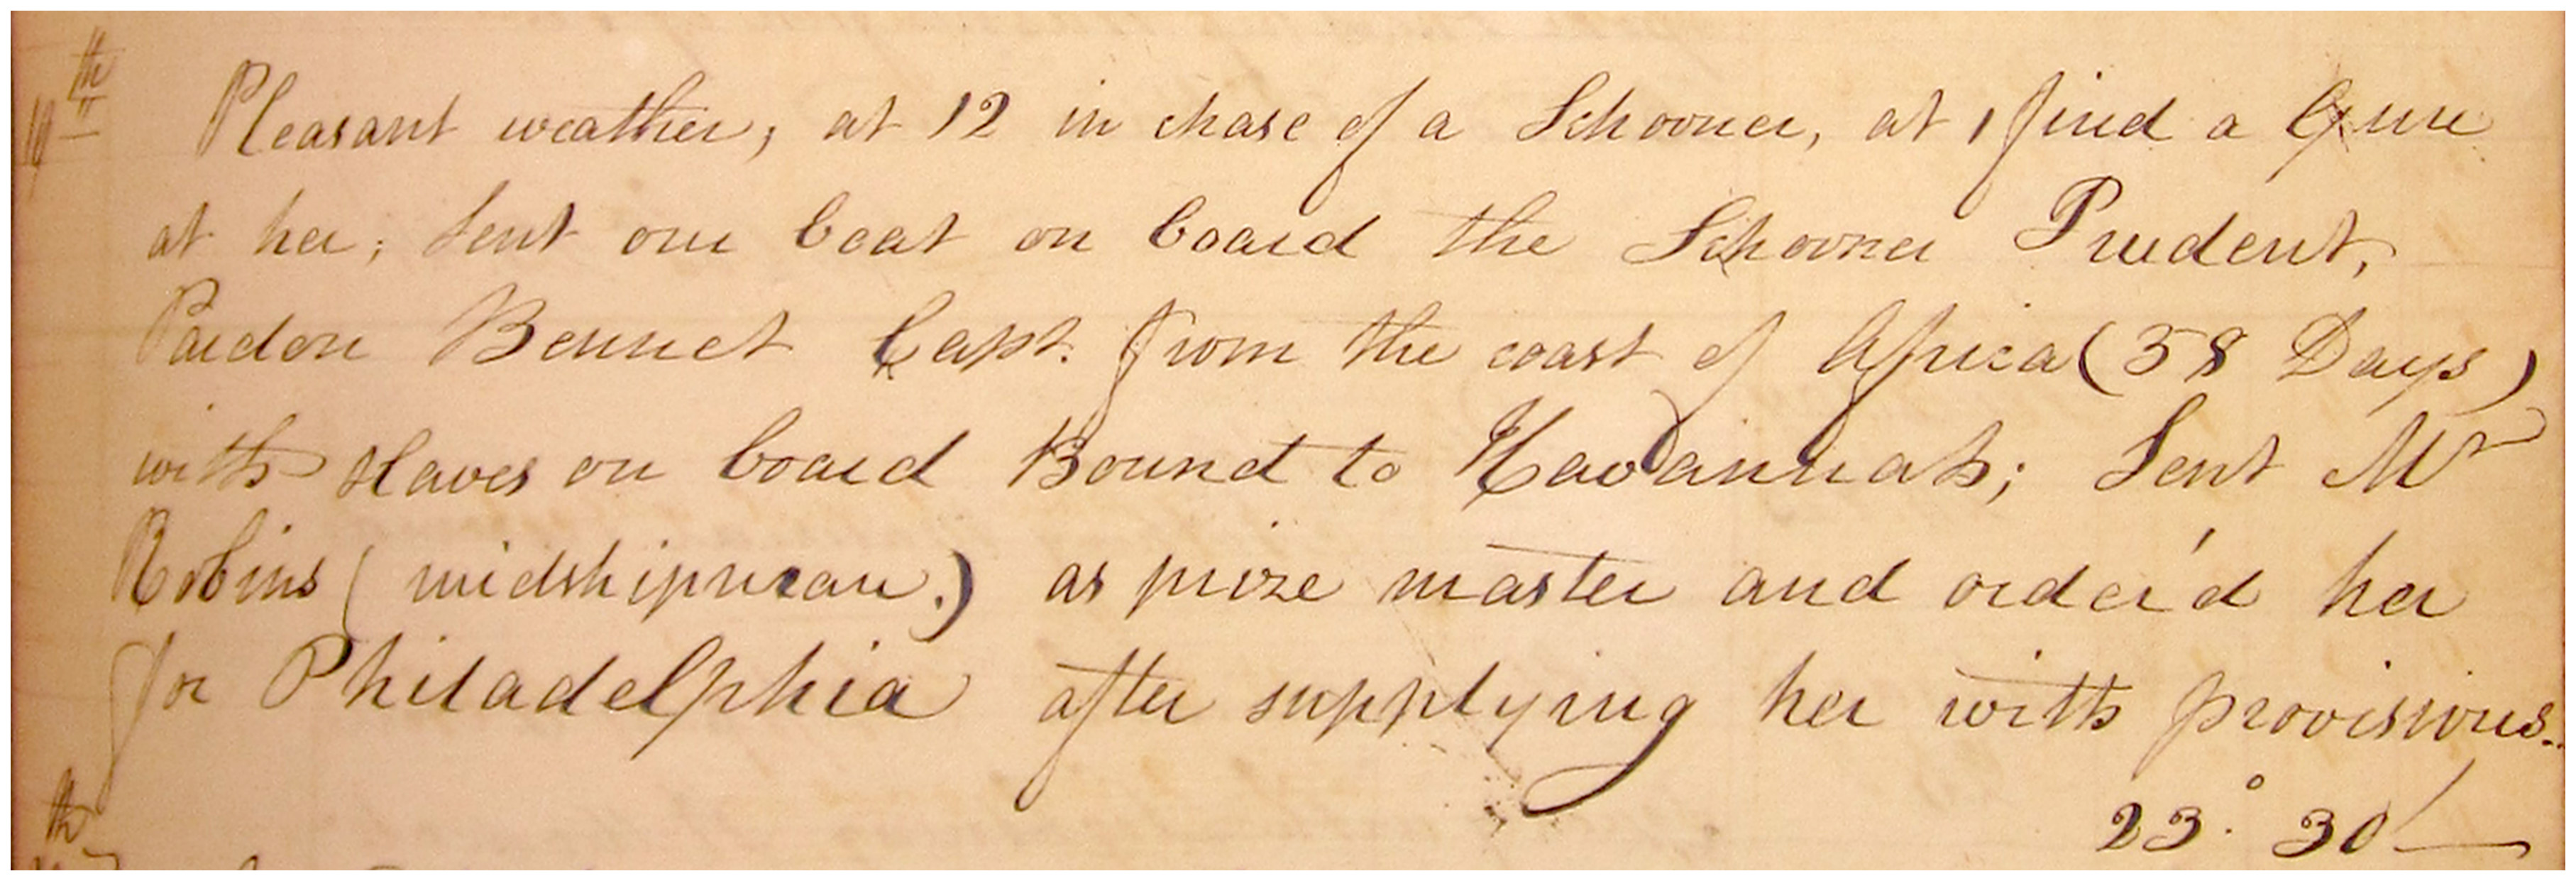 Pleasant weather, at 12 in chase of a Schooner, at 1 find a Gun
at her; Sent our boat on board the Schooner Prudent,
Pardon Bennet Capt. from the coast of Africa (58 Days)
with slaves on board Bound to Havannah; Sent Mr
Robins (midshipman.) as prize master and order'd her
for Philadelphia after supplying her with provisions.
23° 30'